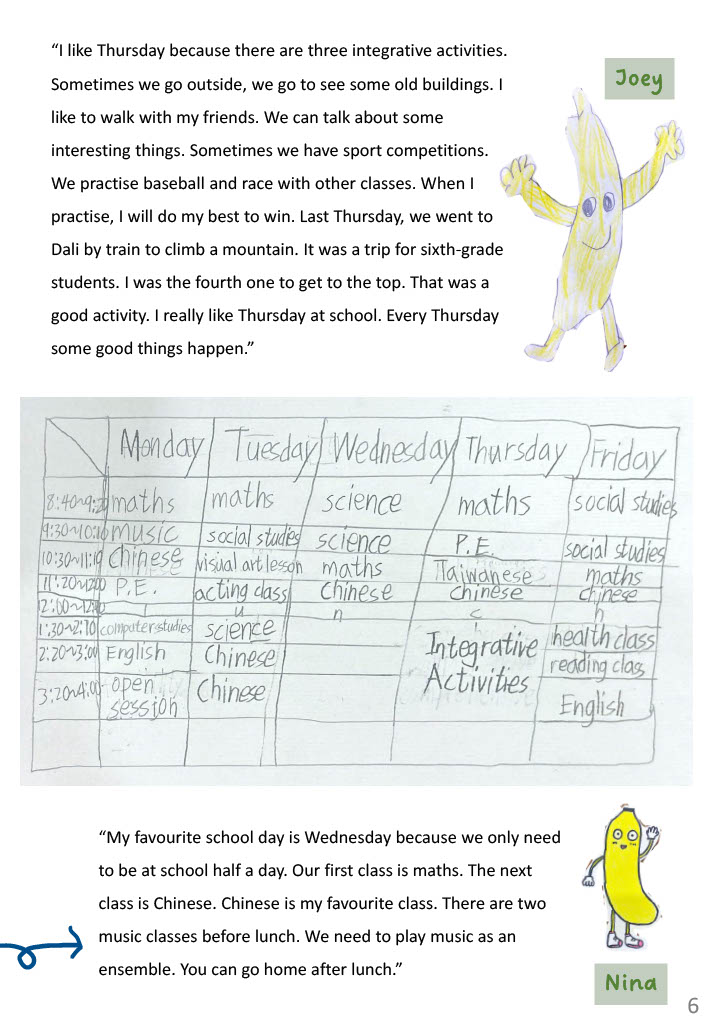 “I like Thursday because there are three integrative activities.
Sometimes we go outside, we go to see some old buildings. I
like to walk with my friends. We can talk about some
interesting things. Sometimes we have sport competitions.
We practise baseball and race with other classes. When I
practise, I will do my best to win. Last Thursday, we went to
Dali by train to climb a mountain. It was a trip for sixth-grade
students. I was the fourth one to get to the top. That was a
good activity. I really like Thursday at school. Every Thursday
some good things happen.”
Joey
Monday Tuesday Wednesday Thursday Friday
8:40~9:20 maths maths science maths social studies
9:30~10:10 music social studies science P.E. social studies
10:30~11:10 Chinese visual art lesson maths Taiwanese maths
11:20~12:00 P.E. acting class Chinese Chinese chinese
l u n c h
1:30~2:10 computer studies science Integrative Activities health class
2:20~3:00 English Chinese reading class
3:20~4:00 open session Chinese English
“My favourite school day is Wednesday because we only need
to be at school half a day. Our first class is maths. The next
class is Chinese. Chinese is my favourite class. There are two
music classes before lunch. We need to play music as an
ensemble. You can go home after lunch.”
Nina
6